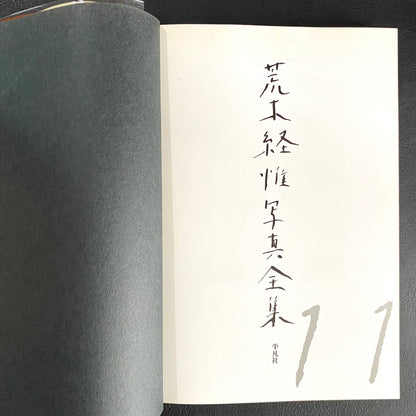 荒木経惟写真全集
平凡社
11